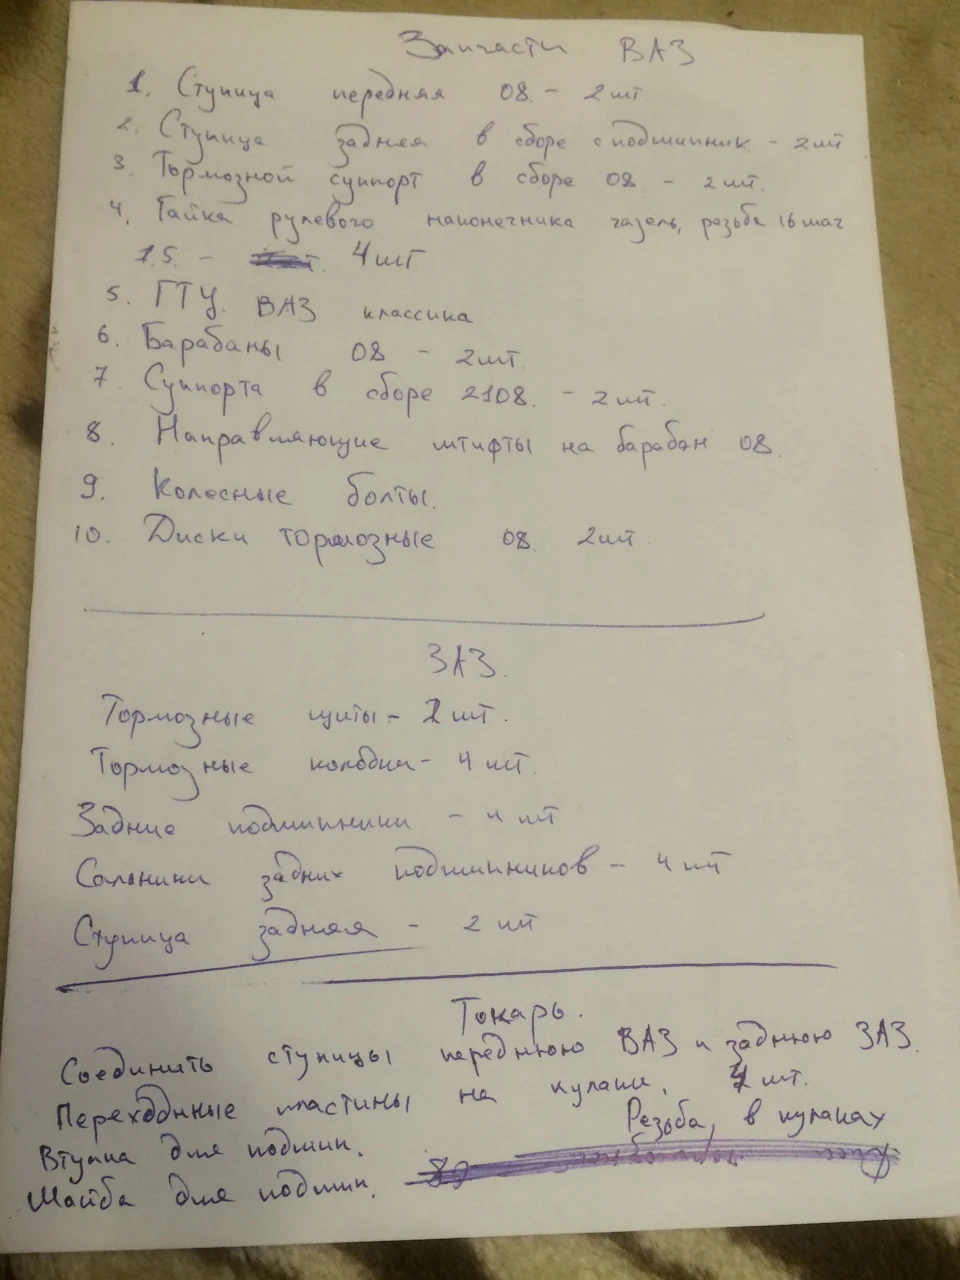 Запчасти ВАЗ
1. Ступица передняя 08. - 2шт
2. Ступица задняя в сборе с подшипник - 2шт
3. Тормозной суппорт в сборе 08 - 2 шт.
4. Гайка рулевого наконечника газель, резьба 16 шаг
1.5. - 4шт
5. ГТЦ. ВАЗ классика
6. Барабаны 08 - 2шт.
7 Суппорта в сборе 2108. - 2 шт.
8. Направляющие штифты на барабан 08.
9. Колесные болты.
10. Диски тормозные 08. 2шт.
ЗАЗ.
Тормозные щиты - 2 шт.
Тормозные колодки - 4 шт.
Задние подшипники - 4 шт
Сальники задних подшипников - 4 шт
Ступица задняя - 2 шт
Токарь.
Соединить ступицы переднюю ВАЗ и заднюю ЗАЗ.
Переходные пластины на кулаки. 4 шт.
Втулка для подшип. Резьба, в кулаках
Шайба для подшип.